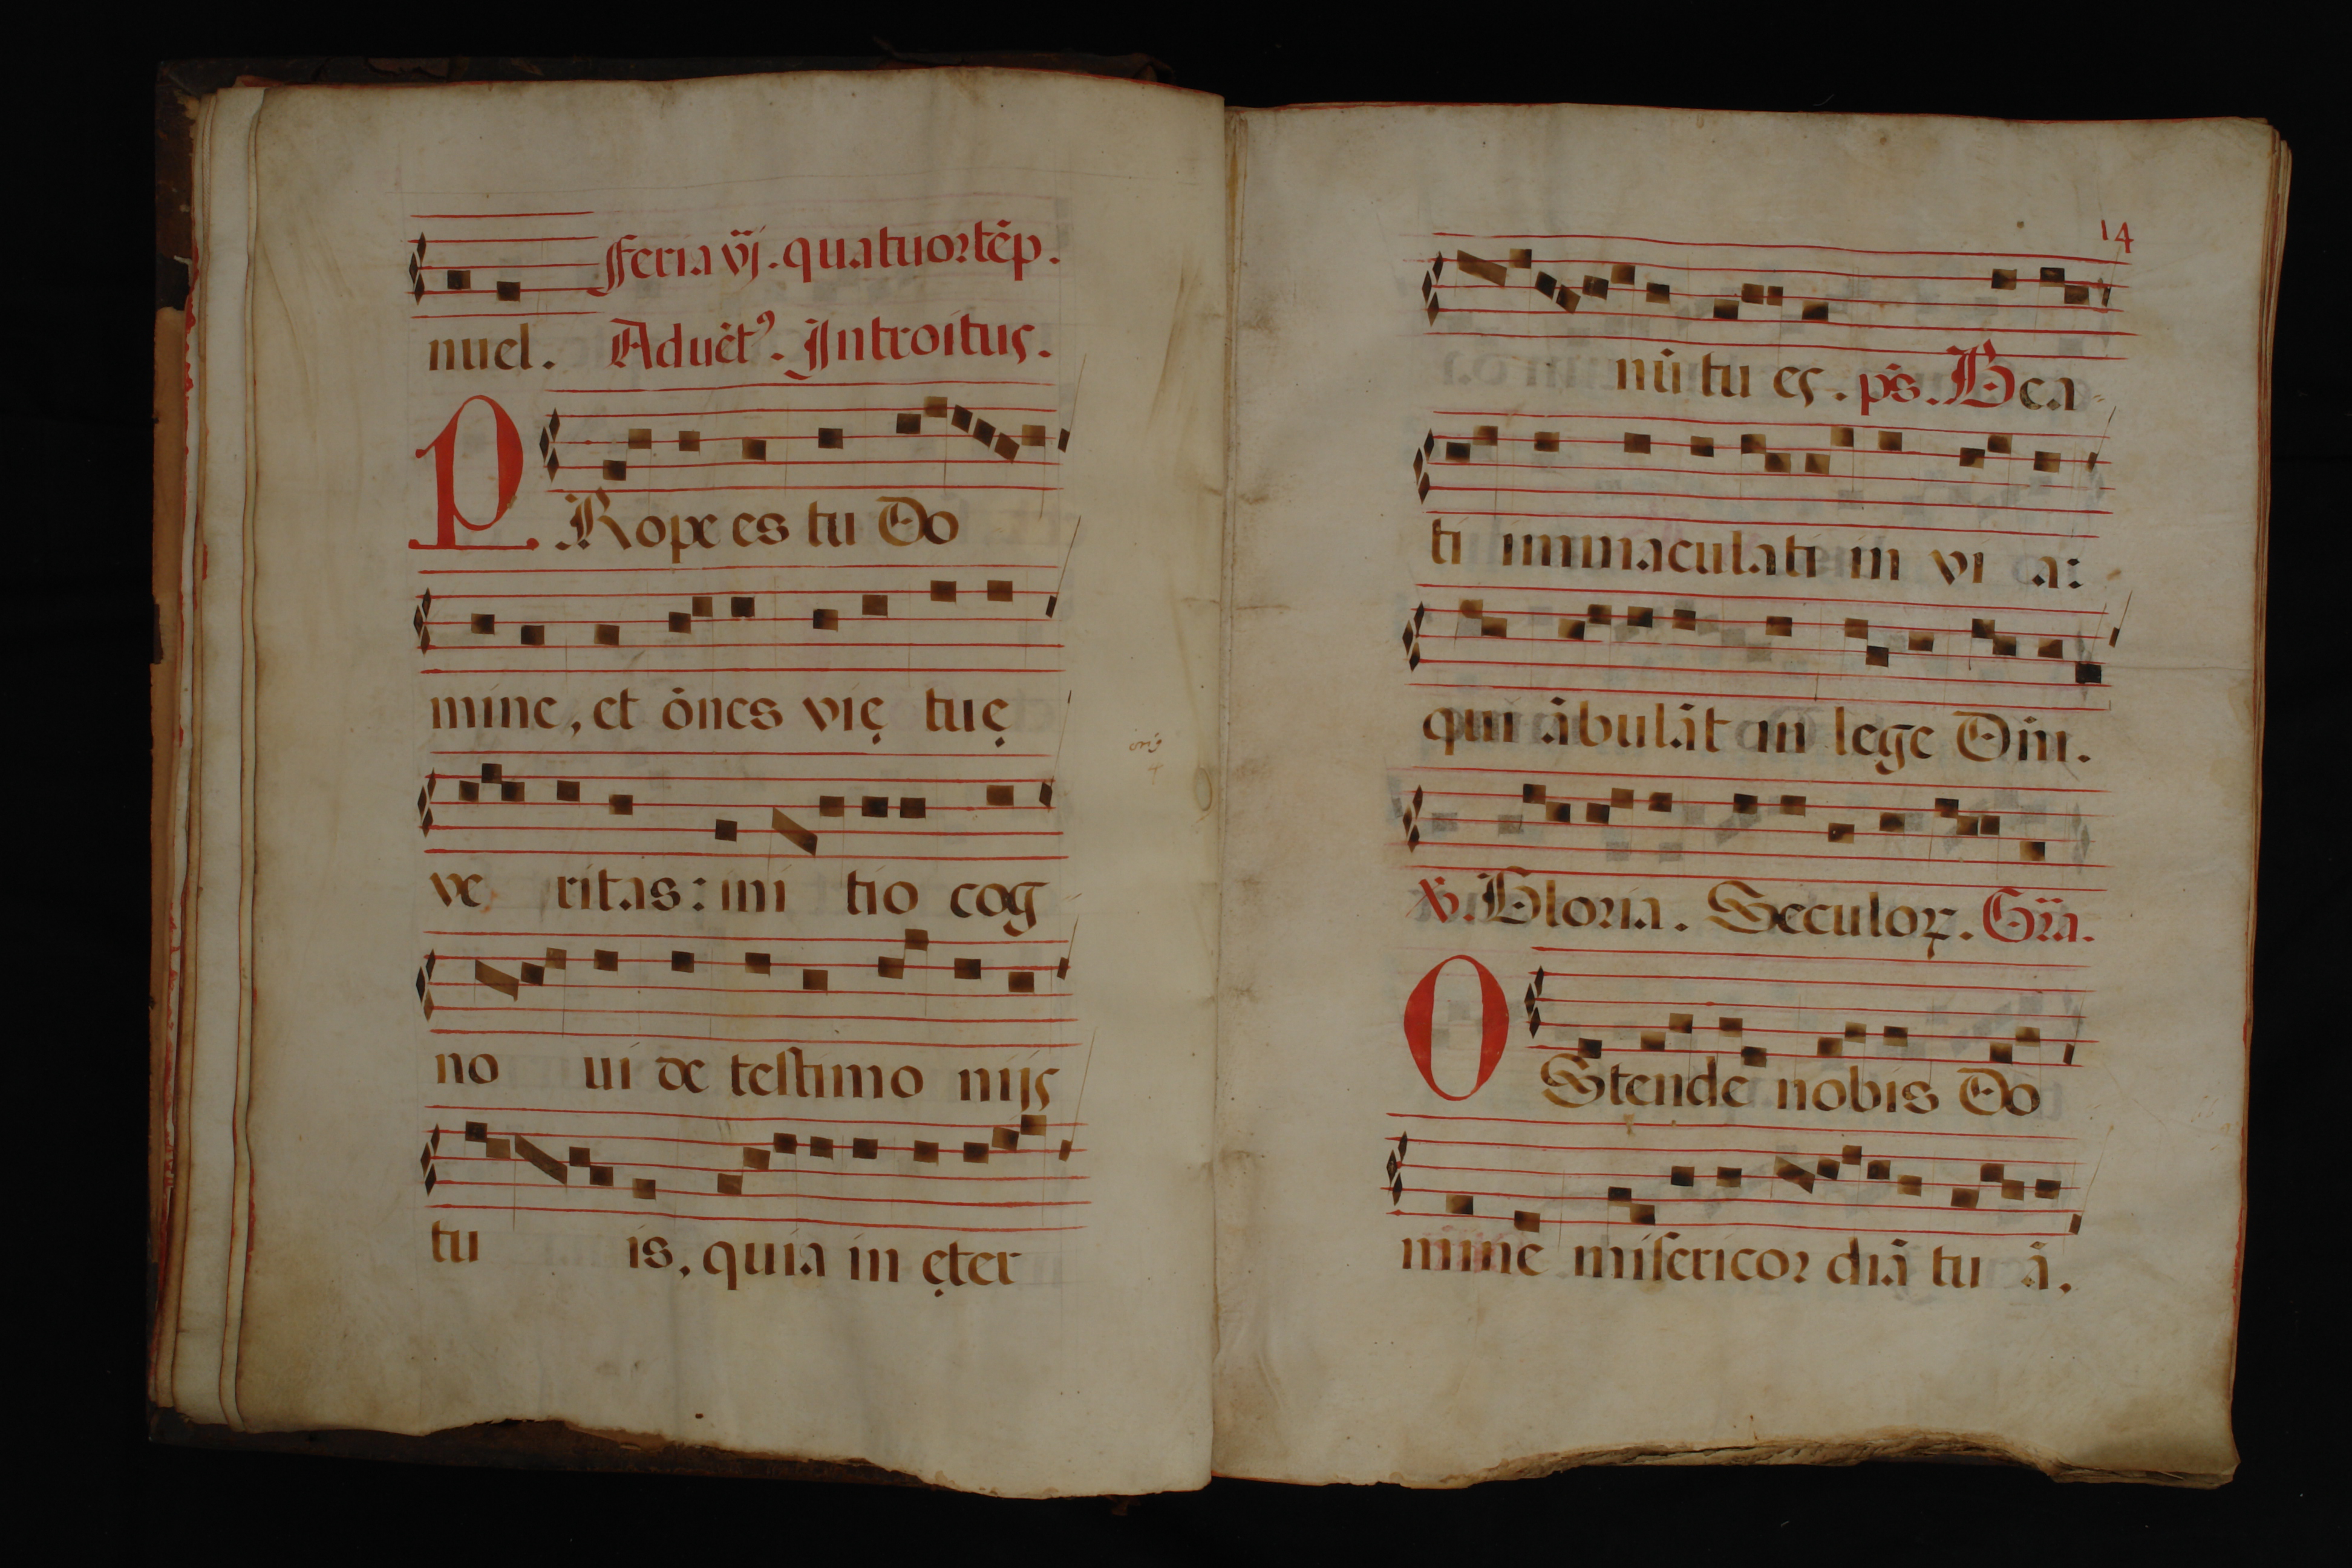 Feria vj. quatuor tẽp.
nuel. Aduẽtꝰ. Introitus.
PRope es tu Do
mine, et õnes vię tuę
ve ritas: ini tio cog
no ui de testimo nijs
tu is, quia in ęter
14
nũ tu es. ps. Bea
ti immaculati in vi a:
qui ãbulãt in lege Dñi.
℣. Gloria. Seculoꝝ. Gra.
OStende nobis Do
mine misericor diã tu ã.